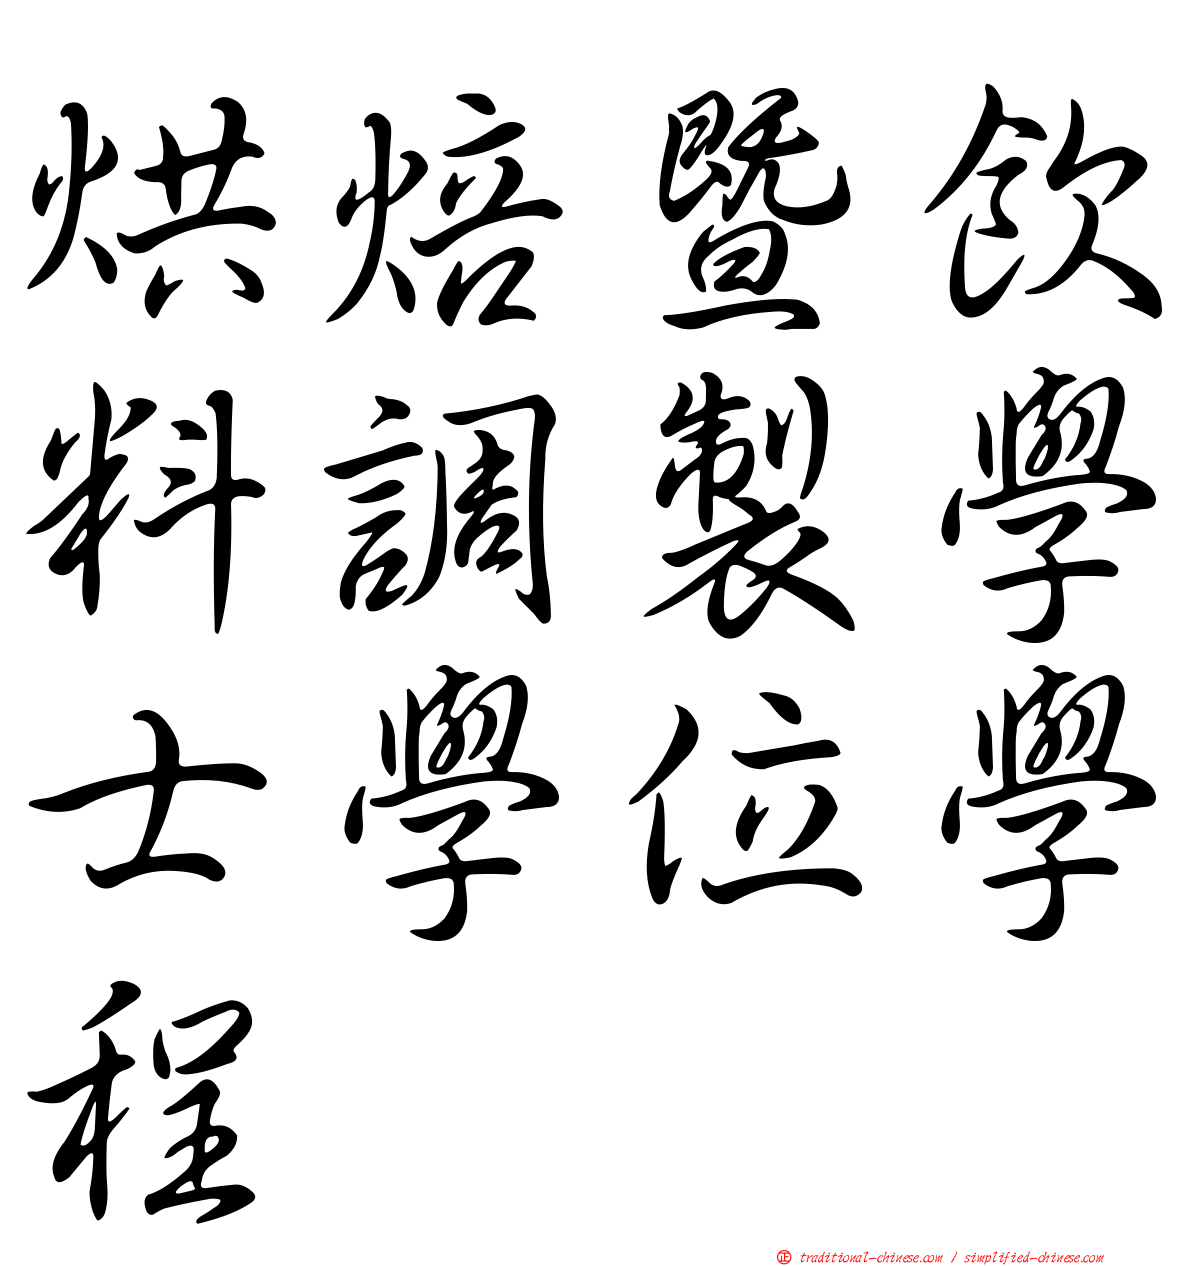 烘焙暨飲
料調製學
士學位學
程
正 traditional-chinese.com / simplified-chinese.com